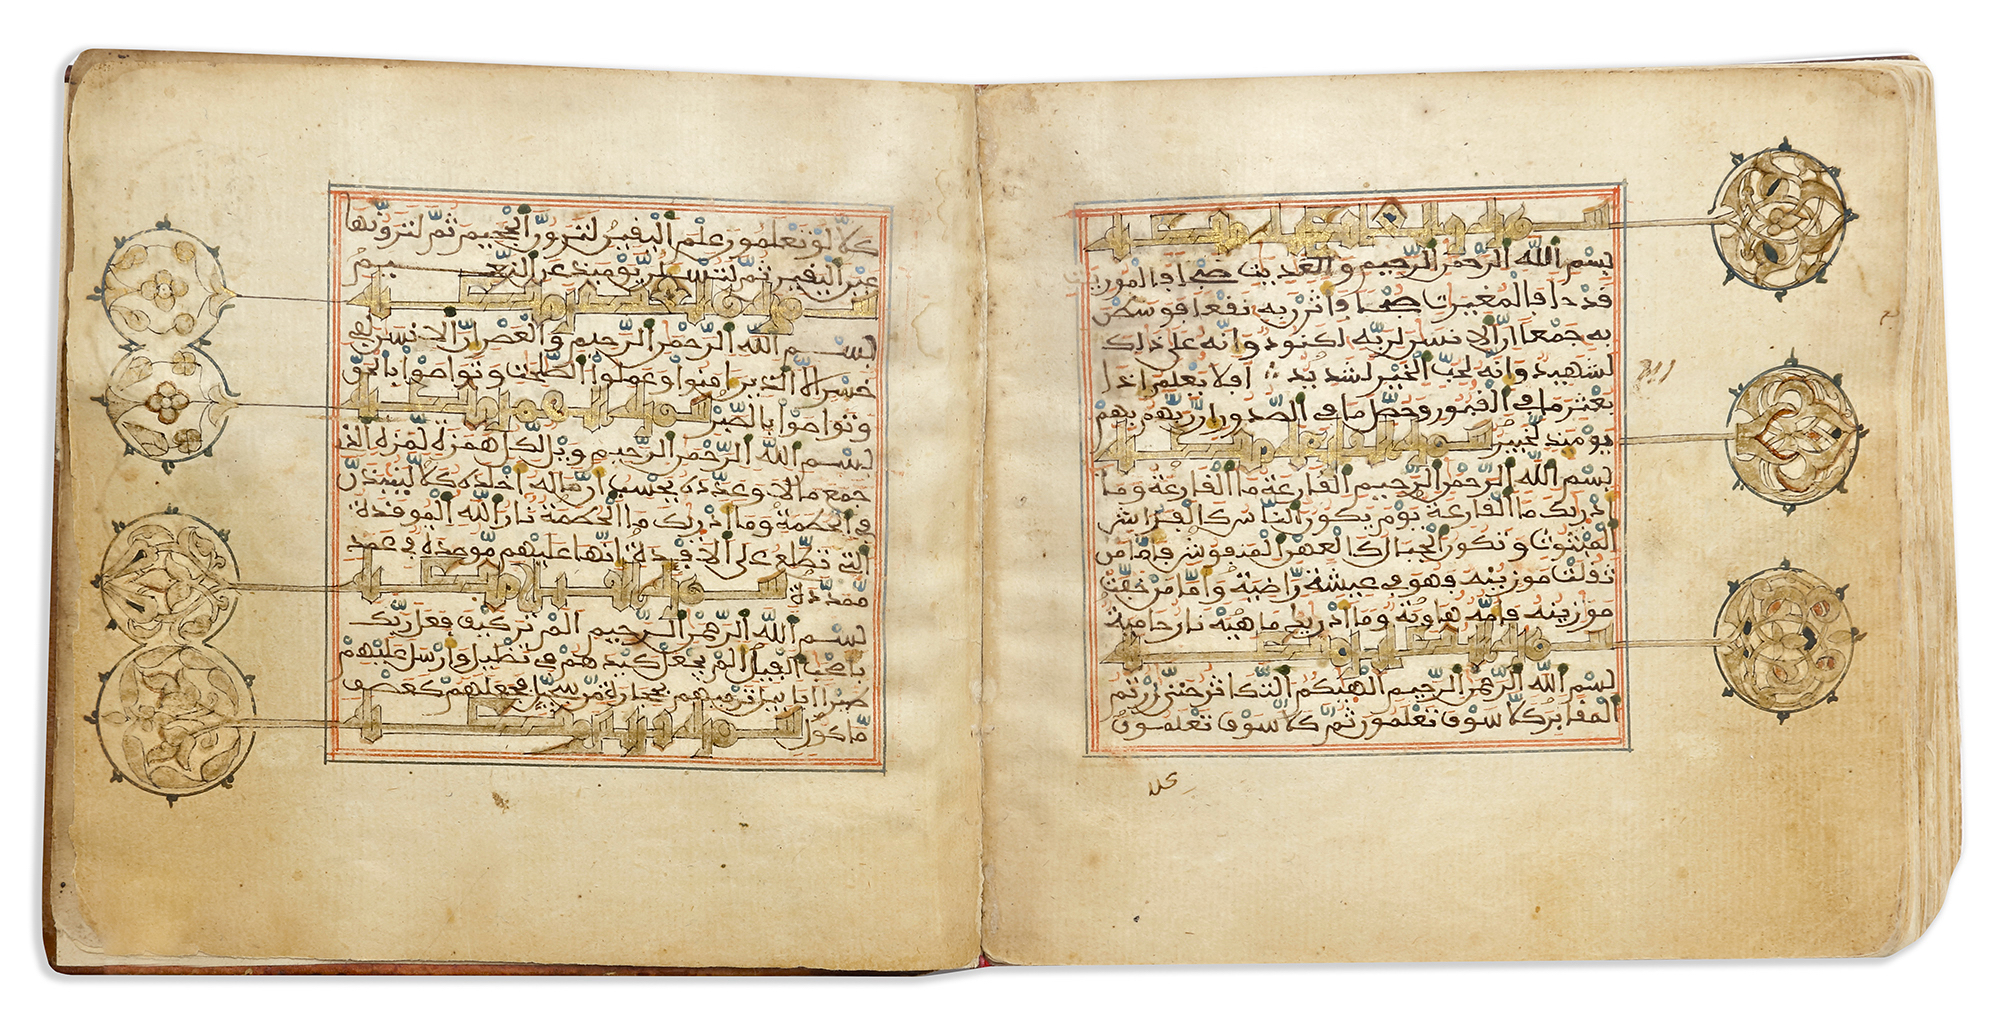 سورة والعاديات مكية
بسم الله الرحمن الرحيم والعديت ضبحا فالموريت
قدحا فالمغيرت صبحا فأثرن به نقعا فوسطن
به جمعا ان الانسن لربه لكنود وانه على ذلك
لشهيد وانه لحب الخير لشديد افلا يعلم اذا
بعثر ما في القبور وحصل ما في الصدور ان ربهم بهم
يومئذ لخبير سورة القارعة مكية
بسم الله الرحمن الرحيم القارعة ما القارعة وما
ادريك ما القارعة يوم يكون الناس كالفراش
المبثوث وتكون الجبال كالعهن المنفوش فاما من
ثقلت موزينه فهو في عيشة راضية واما من خفت
موزينه فامه هاوية وما ادريك ما هيه نار حامية
بسم الله الرحمن الرحيم الهيكم التكاثر حتى زرتم
المقابر كلا سوف تعلمون ثم كلا سوف تعلمون
كلا لو تعلمون علم اليقين لترون الجحيم ثم لترونها
عين اليقين ثم لتسئلن يومئذ عن النعيم
سورة والعصر مكية
بسم الله الرحمن الرحيم والعصر ان الانسن لفي
خسر الا الذين امنوا وعملوا الصلحت وتواصوا بالحق
وتواصوا بالصبر سورة الهمزة مكية
بسم الله الرحمن الرحيم ويل لكل همزة لمزة الذي
جمع مالا وعدده يحسب ان ماله اخلده كلا لينبذن
في الحطمة وما ادريك ما الحطمة نار الله الموقدة
التي تطلع على الافئدة انها عليهم موصدة في عمد
ممددة سورة الفيل مكية
بسم الله الرحمن الرحيم الم تر كيف فعل ربك
باصحب الفيل الم يجعل كيدهم في تضليل وارسل عليهم
طيرا ابابيل ترميهم بحجارة من سجيل فجعلهم كعصف
ماكول سورة قريش مكية